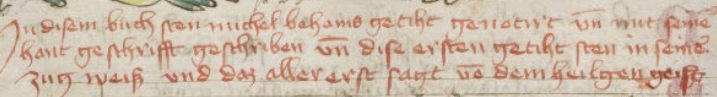 In disem buch sten michel behams getiht genotirt vn̄ mit seine᷑
hant geschrifft geschriben vn̄ dise ersten getiht sten in seine᷑
zug weiß vnd daz aller erst sagt vō dem heilgen geist